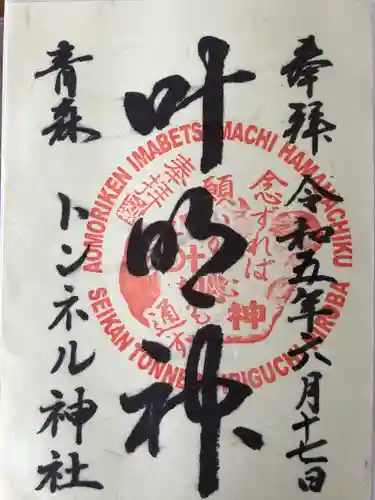 奉拝 令和五年六月十七日
叶明神
青森 トンネル神社
AOMORIKEN IMABETSUMACHI HAMANACHIKU
SEIKAN TUNNEL IRIGUCHI HIROBA
念ずれば
願いの
叶
神
通ず